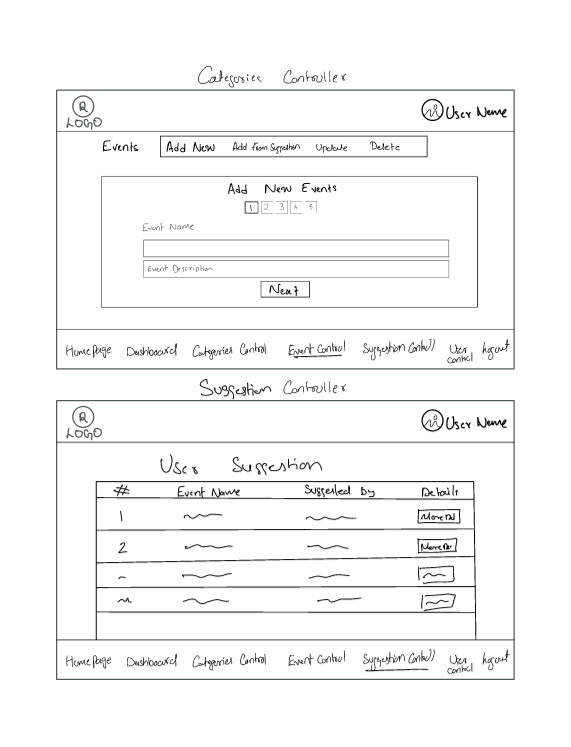 Categories Controller
R
LOGO
User Name
Events Add New Add From Suggestion Update Delete
Add New Events
1 2 3 4 5
Event Name
Event Description
Next
Home Page Dashboard Categories Control Event Control Suggestion Control User control logout
Suggestion Controller
R
LOGO
User Name
User Suggestion
# Event Name Suggested by Details
1 More
2 More
Home Page Dashboard Categories Control Event Control Suggestion Control User control logout